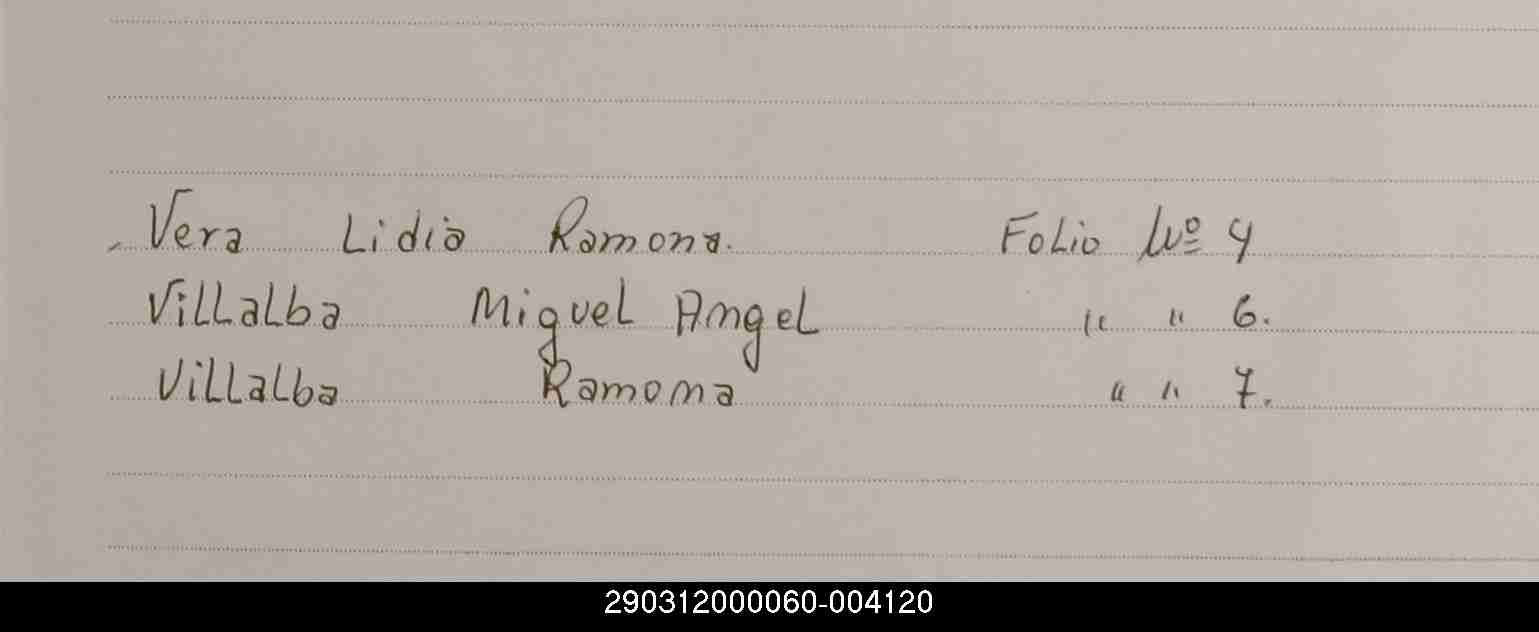 Vera Lidia Ramona. Folio Nº 4
Villalba Miguel Angel " " 6.
Villalba Ramona " " 7.
290312000060-004120